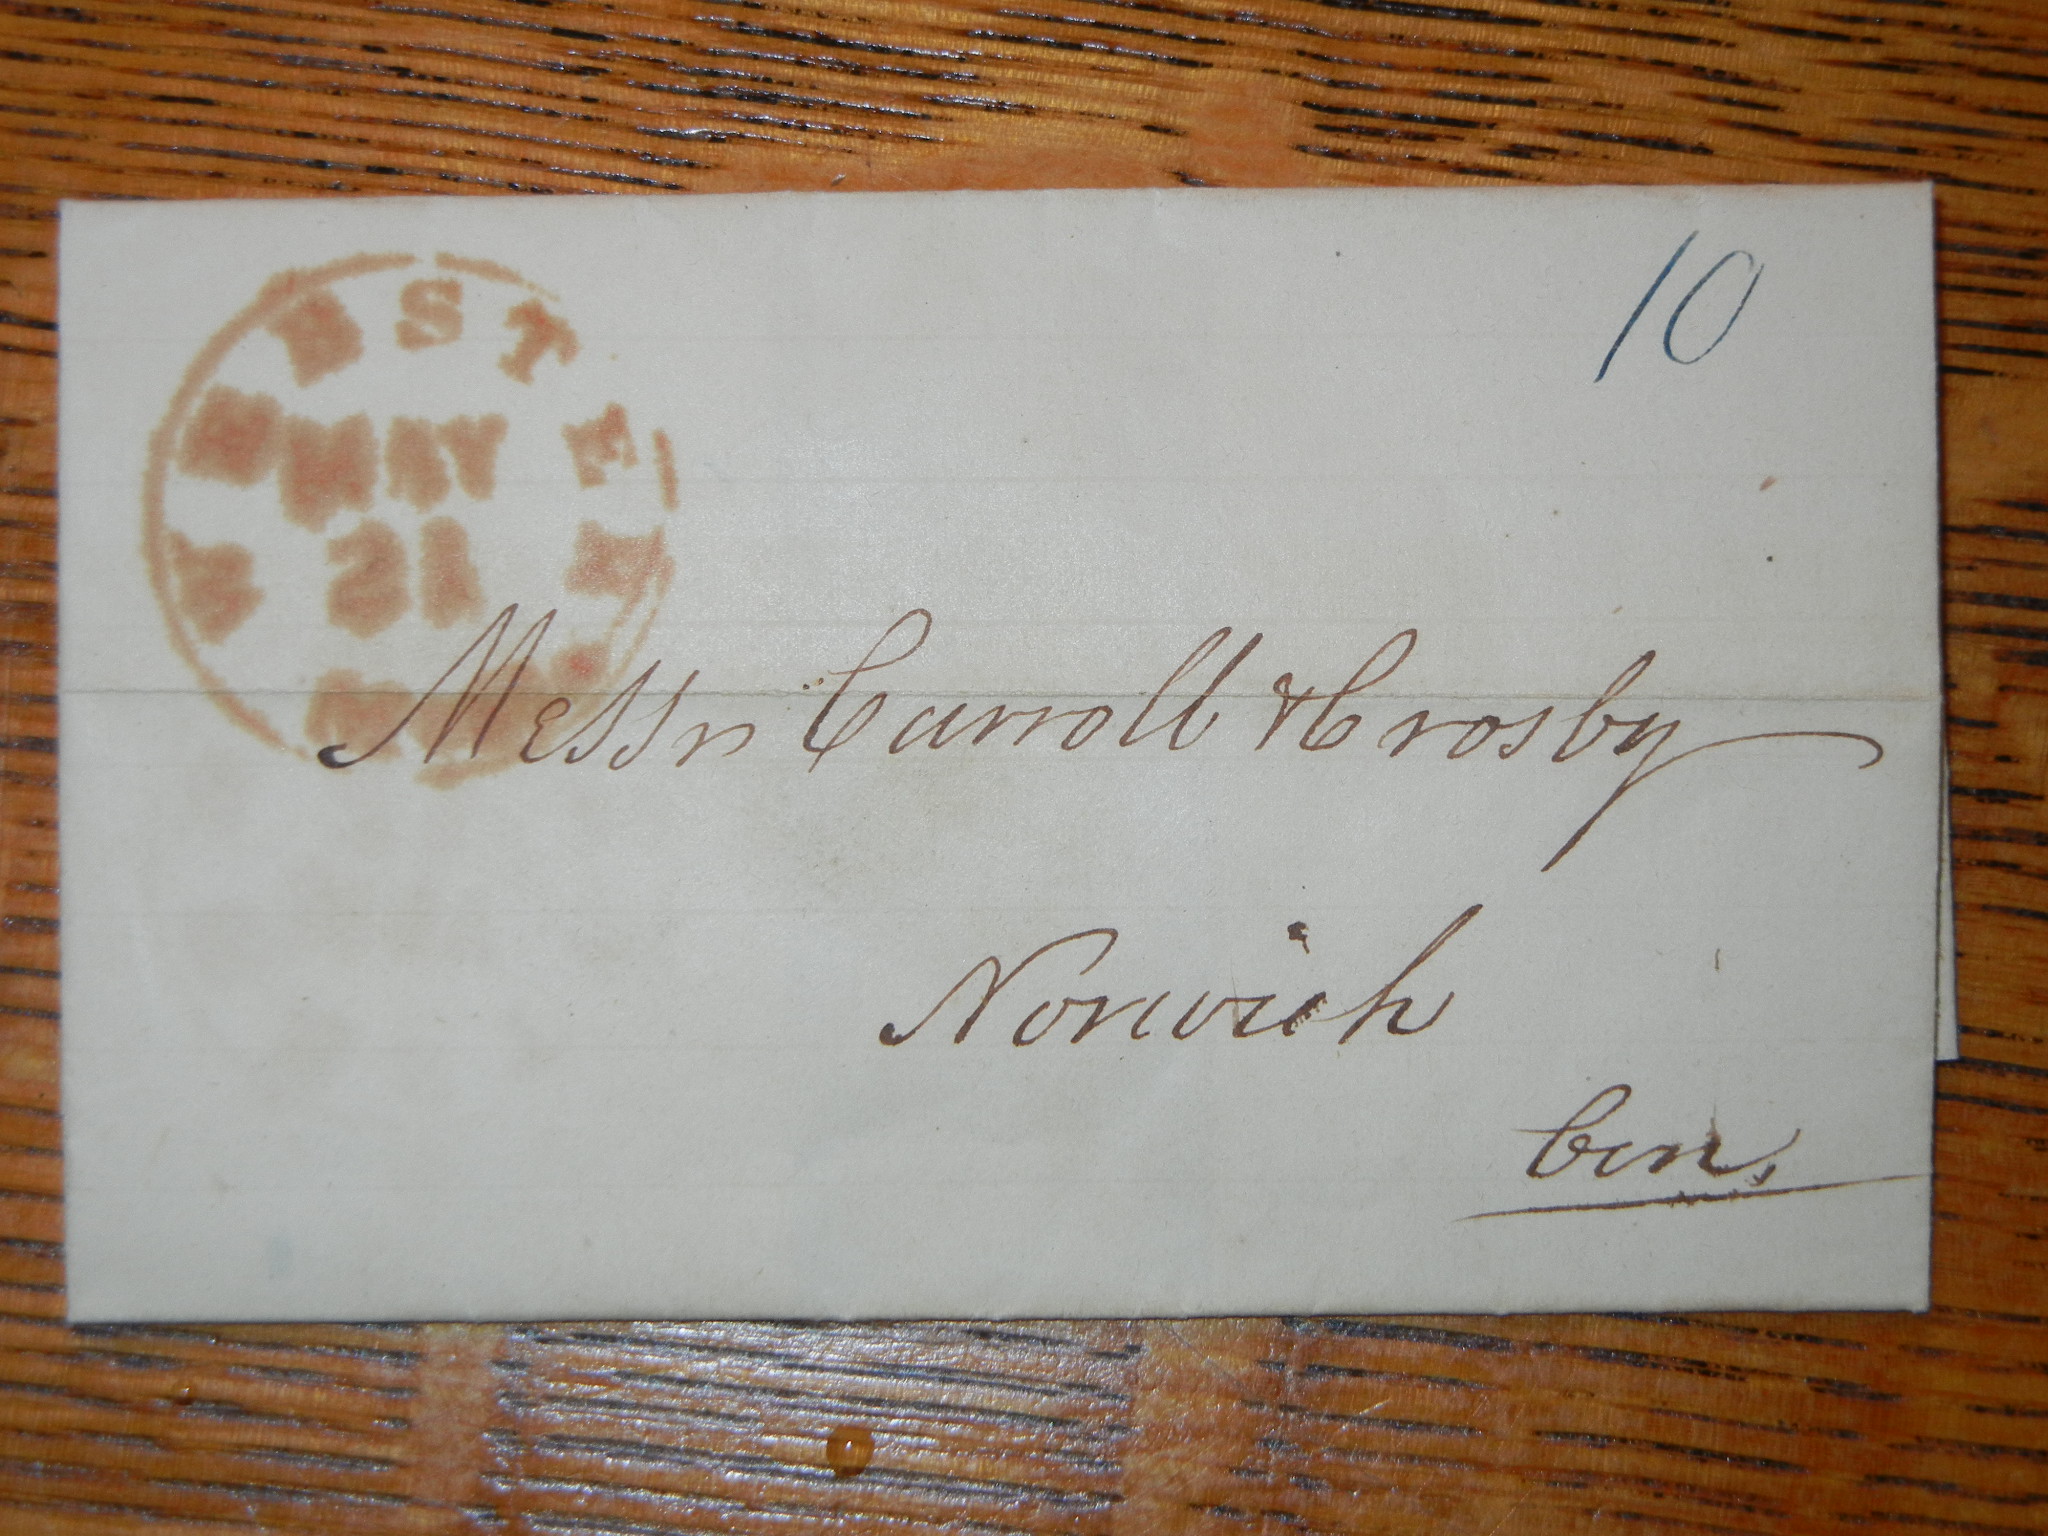 WEBSTER
MAY
21
10
Messrs Carroll & Crosby
Norwich
Con.